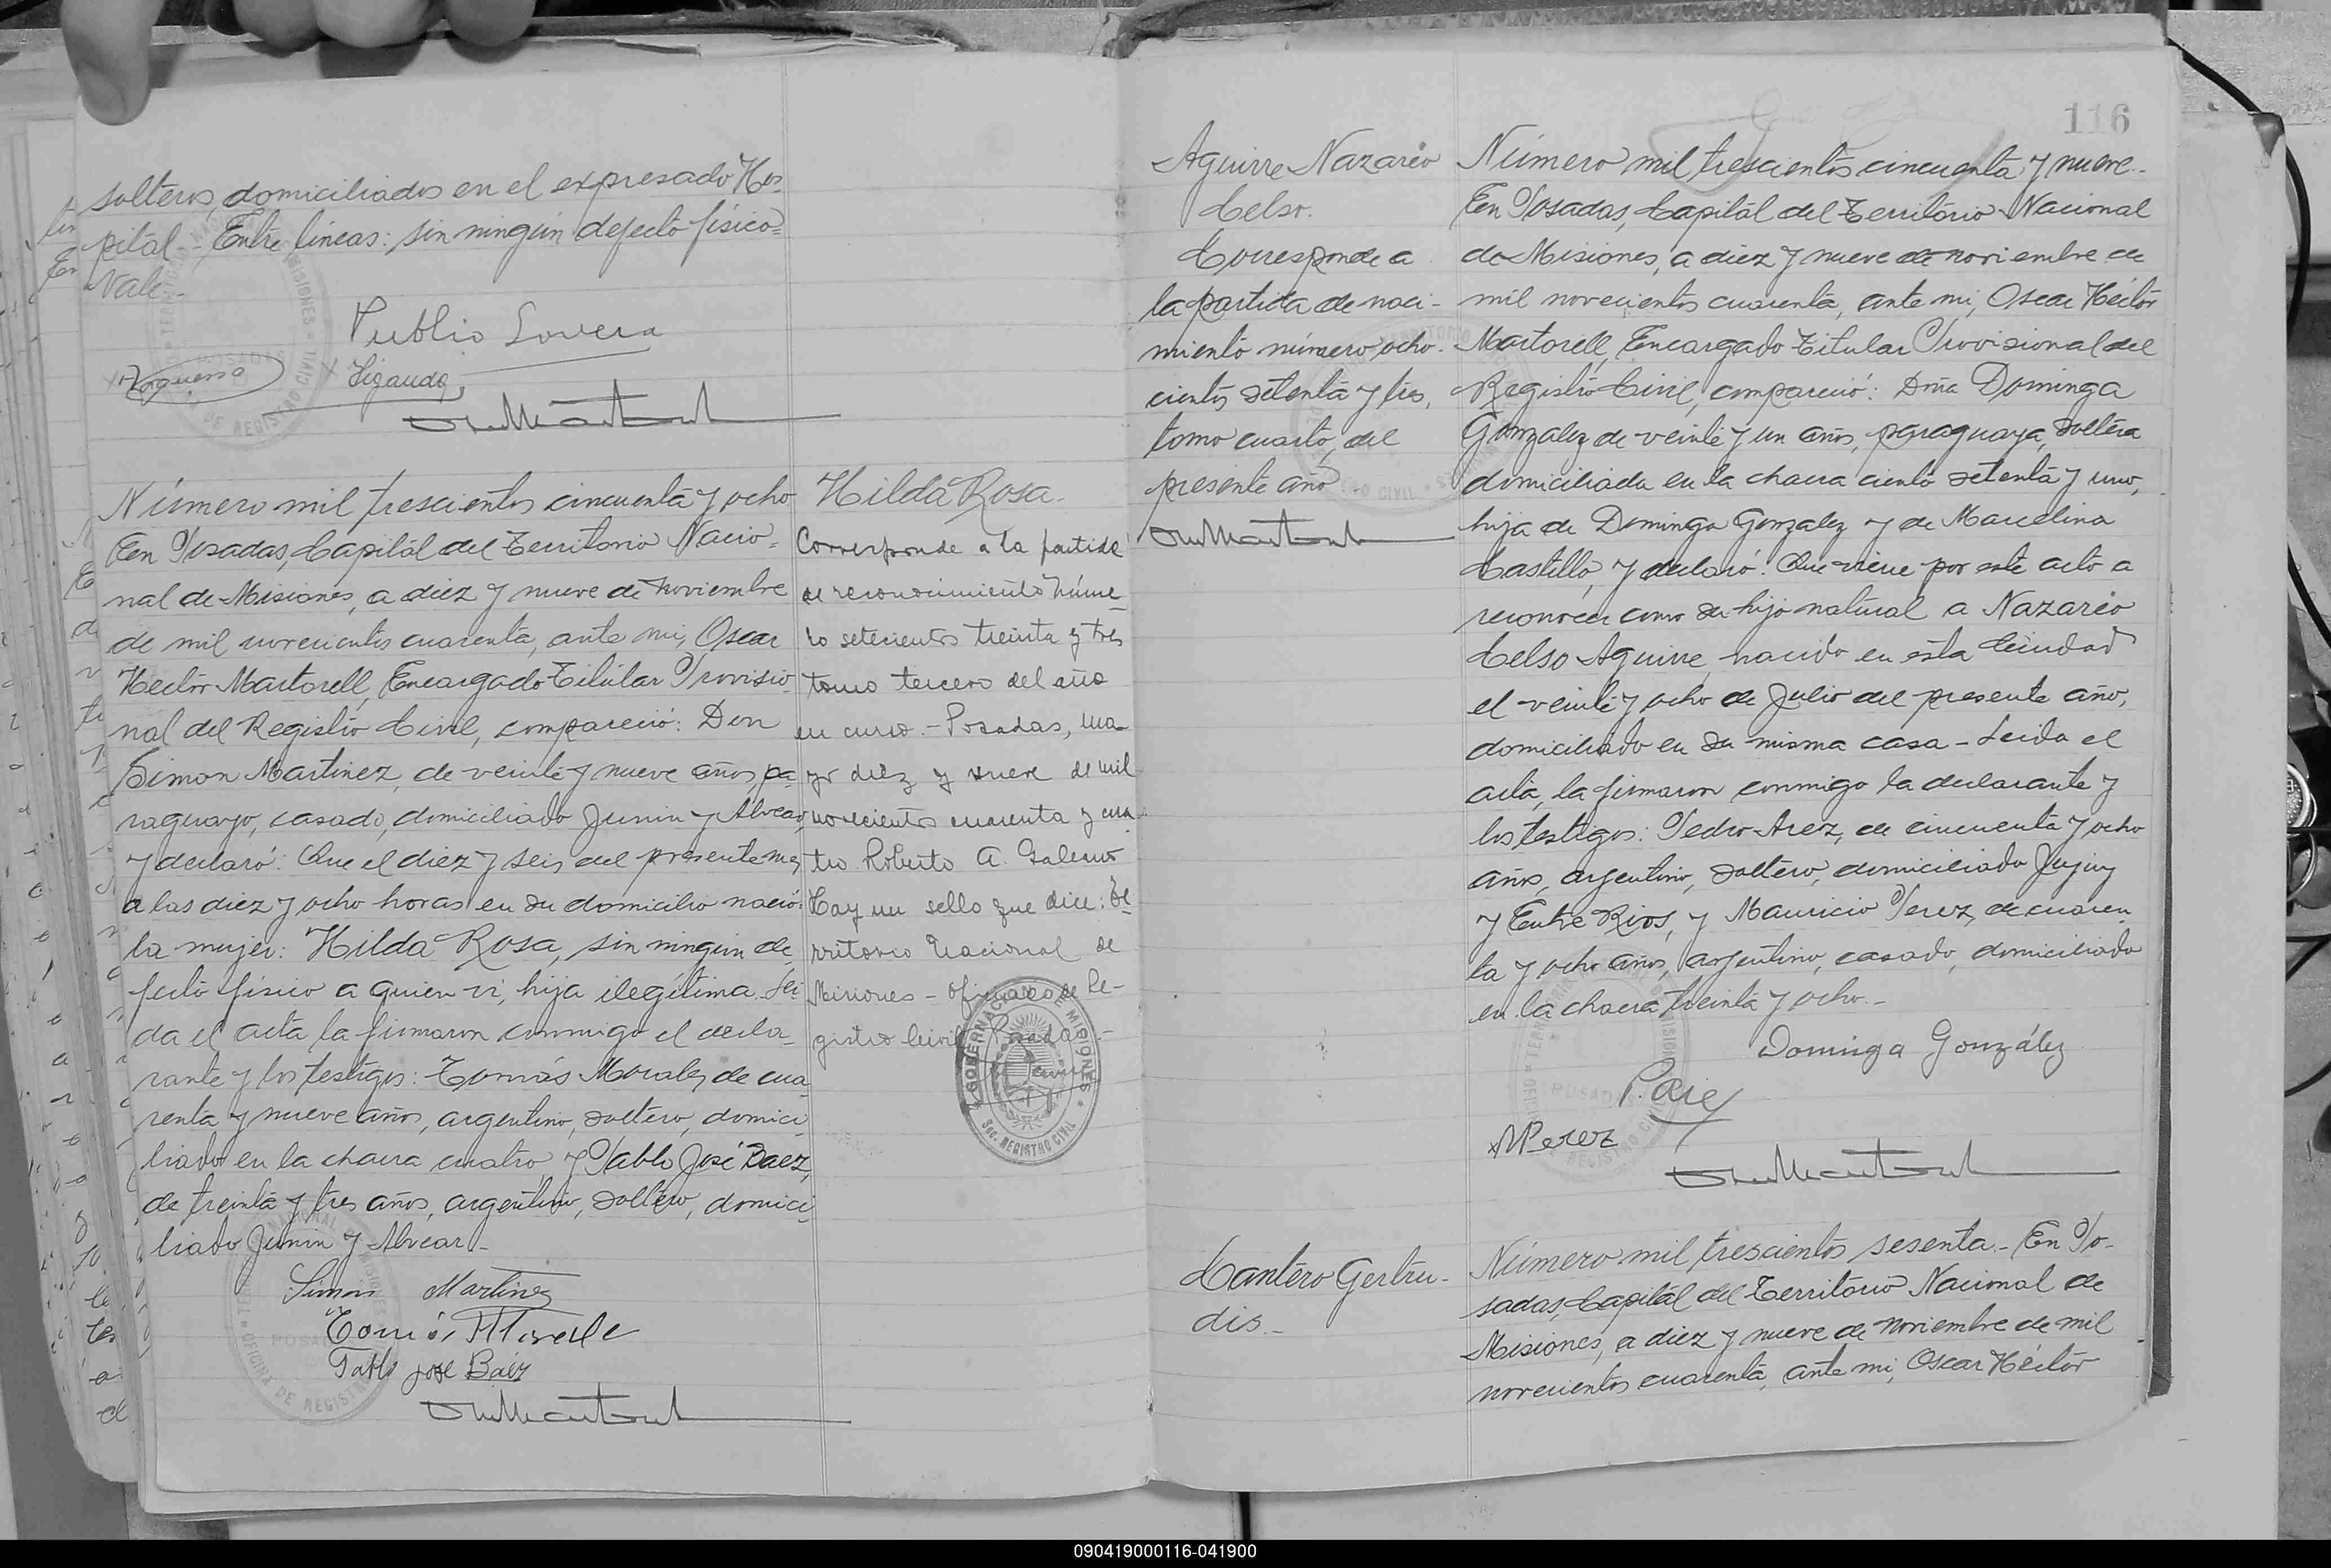 solteros, domiciliados en el expresado Hos-
pital - Entre lineas: sin ningún defecto físico=
Vale-
Publio Lovera
Número mil trescientos cincuenta y ocho
En Posadas, Capital del Territorio Nacio-
nal de Misiones, a diez y nueve de noviembre
de mil novecientos cuarenta, ante mi, Oscar
Hector Martorell, Encargado Titular Provisio
nal del Registro Civil, compareció: Don
Simon Martinez, de veinte y nueve años, pa-
raguayo, casado, domiciliado Junin y Alvear,
y declaró: Que el diez y seis del presente mes
a las diez y ocho horas en su domicilio nació:
la mujer: Hilda Rosa, sin ningún de-
fecto físico a quien vi, hija ilegítima. Leí-
da el acta la firmaron conmigo el decla-
rante y los testigos: Tomás Morales, de cua
renta y nueve años, argentino, soltero, domici-
liado en la chacra cuatro, y Pablo José Baez,
de treinta y tres años, argentino, soltero, domici-
liado Junin y Alvear.-
Simon Martinez
Tomás Morale
Pablo jose Baéz
Hilda Rosa.
Corresponde a la partida
de reconocimiento núme-
ro setecientos treinta y tres
tomo tercero del año
en curso.- Posadas, ma-
yo diez y nueve de mil
novecientos cuarenta y cua-
tro. Roberto A. Galeano
Hay un sello que dice: Te-
rritorio Nacional de
Misiones - Oficina de Re-
gistro Civil Posadas.-
GOBERNACION DE MISIONES
SEC. REGISTRO CIVIL
116
Aguirre Nazareo
Celso.
Corresponde a
la partida de naci-
miento número ocho-
cientos setenta y tres,
tomo cuarto, del
presente año.-
Número mil trescientos cincuenta y nueve.-
En Posadas, Capital del Territorio Nacional
de Misiones, a diez y nueve de noviembre de
mil novecientos cuarenta, ante mi, Oscar Héctor
Martorell, Encargado Titular Provisional del
Registro Civil, compareció: Doña Dominga
Gonzalez de veinte y un años, paraguaya, soltera
domiciliada en la chacra ciento setenta y uno,
hija de Domingo Gonzalez y de Marcelina
Castillo, y declaró: Que viene por este acto a
reconocer como su hijo natural a Nazareo
Celso Aguirre, nacido en esta Ciudad
el veinte y ocho de Julio del presente año,
domiciliado en su misma casa - Leida el
acta, la firmaron conmigo la declarante y
los testigos: Pedro Arez, de cincuenta y ocho
años, argentino, soltero, domiciliado Jujuy
y Entre Rios, y Mauricio Perez, de cuaren
ta y ocho años, argentino, casado, domiciliado
en la chacra treinta y ocho.-
Dominga González
MPerez
Cantero Gertru-
dis.-
Número mil trescientos sesenta.- En Po-
sadas, Capital del Territorio Nacional de
Misiones, a diez y nueve de noviembre de mil
novecientos cuarenta, ante mi, Oscar Héctor
090419000116-041900